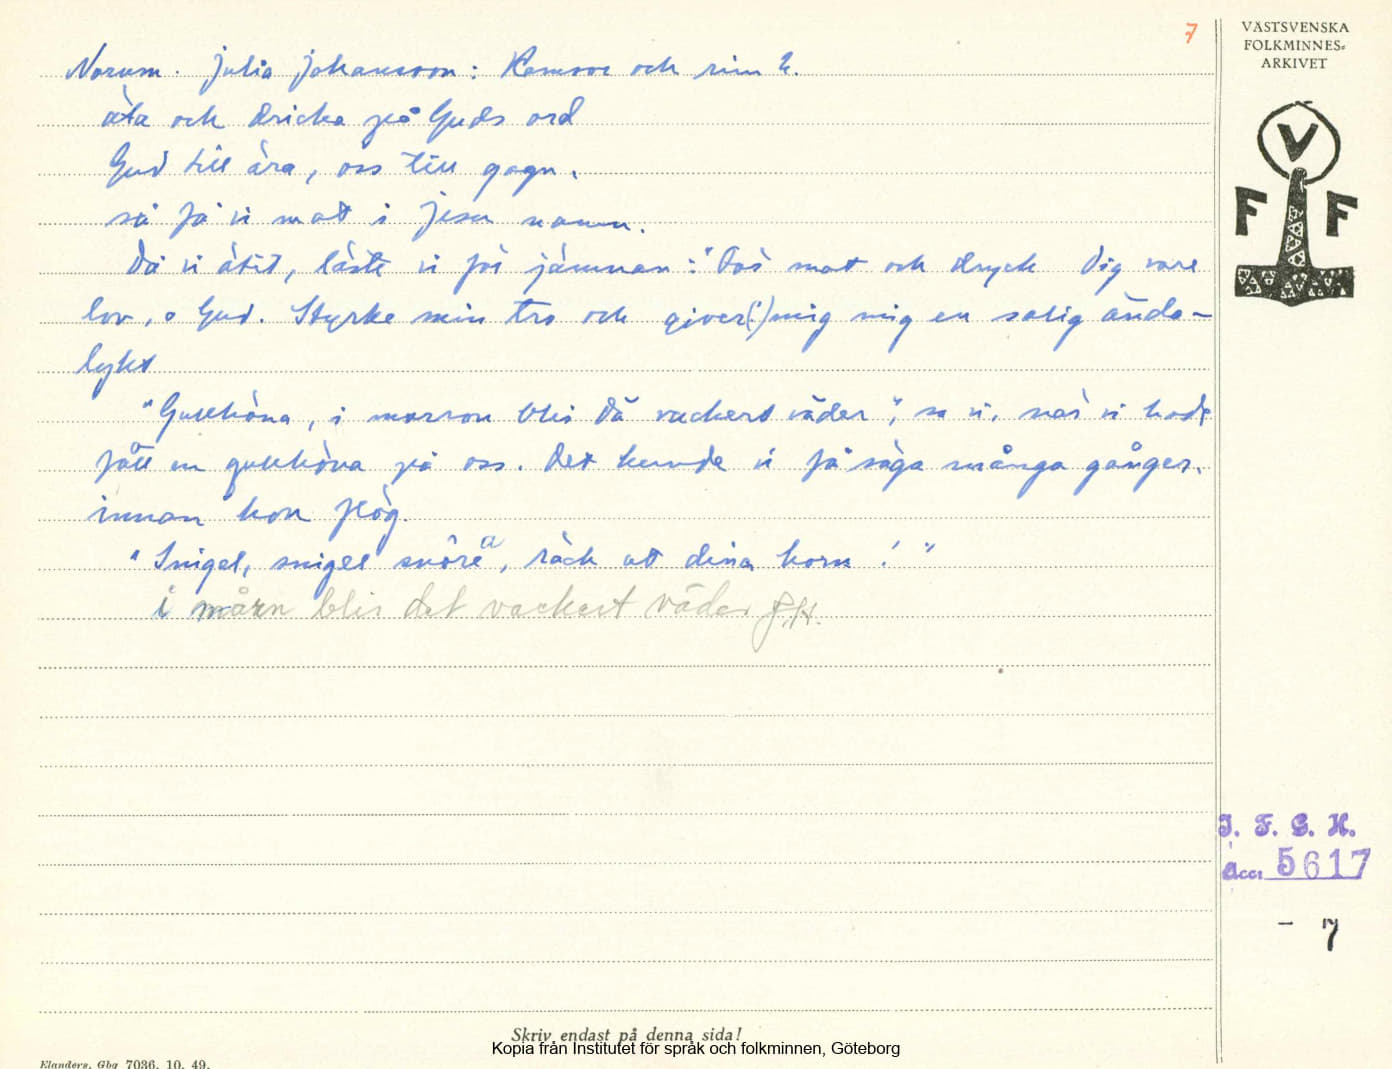 7
VÄSTSVENSKA
FOLKMINNES-
ARKIVET
V
F F
Norum. Julia Johansson: Ramsor och rim 2.
äta och dricka på Guds ord
Gud till ära, oss till gagn,
så få vi mat i Jesu namn.
Då vi ätit, läste vi för jämnan: "För mat och dryck Dig vare
lov, o Gud. Styrke min tro och giver(!) mig mig en salig ända-
lykt
"Gullhöna, i morron blir dä vackert väder", sa vi, när vi hade
fått en gullhöna på oss. Det kunde vi få säga många gånger,
innan hon flög.
"Snigel, snigel snöre a, räck ut dina horn!"
i mårn blir det vackert väder J.H.
I. F. G. H.
Acc: 5617
- 7
Skriv endast på denna sida!
Kopia från Institutet för språk och folkminnen, Göteborg
Elanders, Gbg 7036. 10. 49.